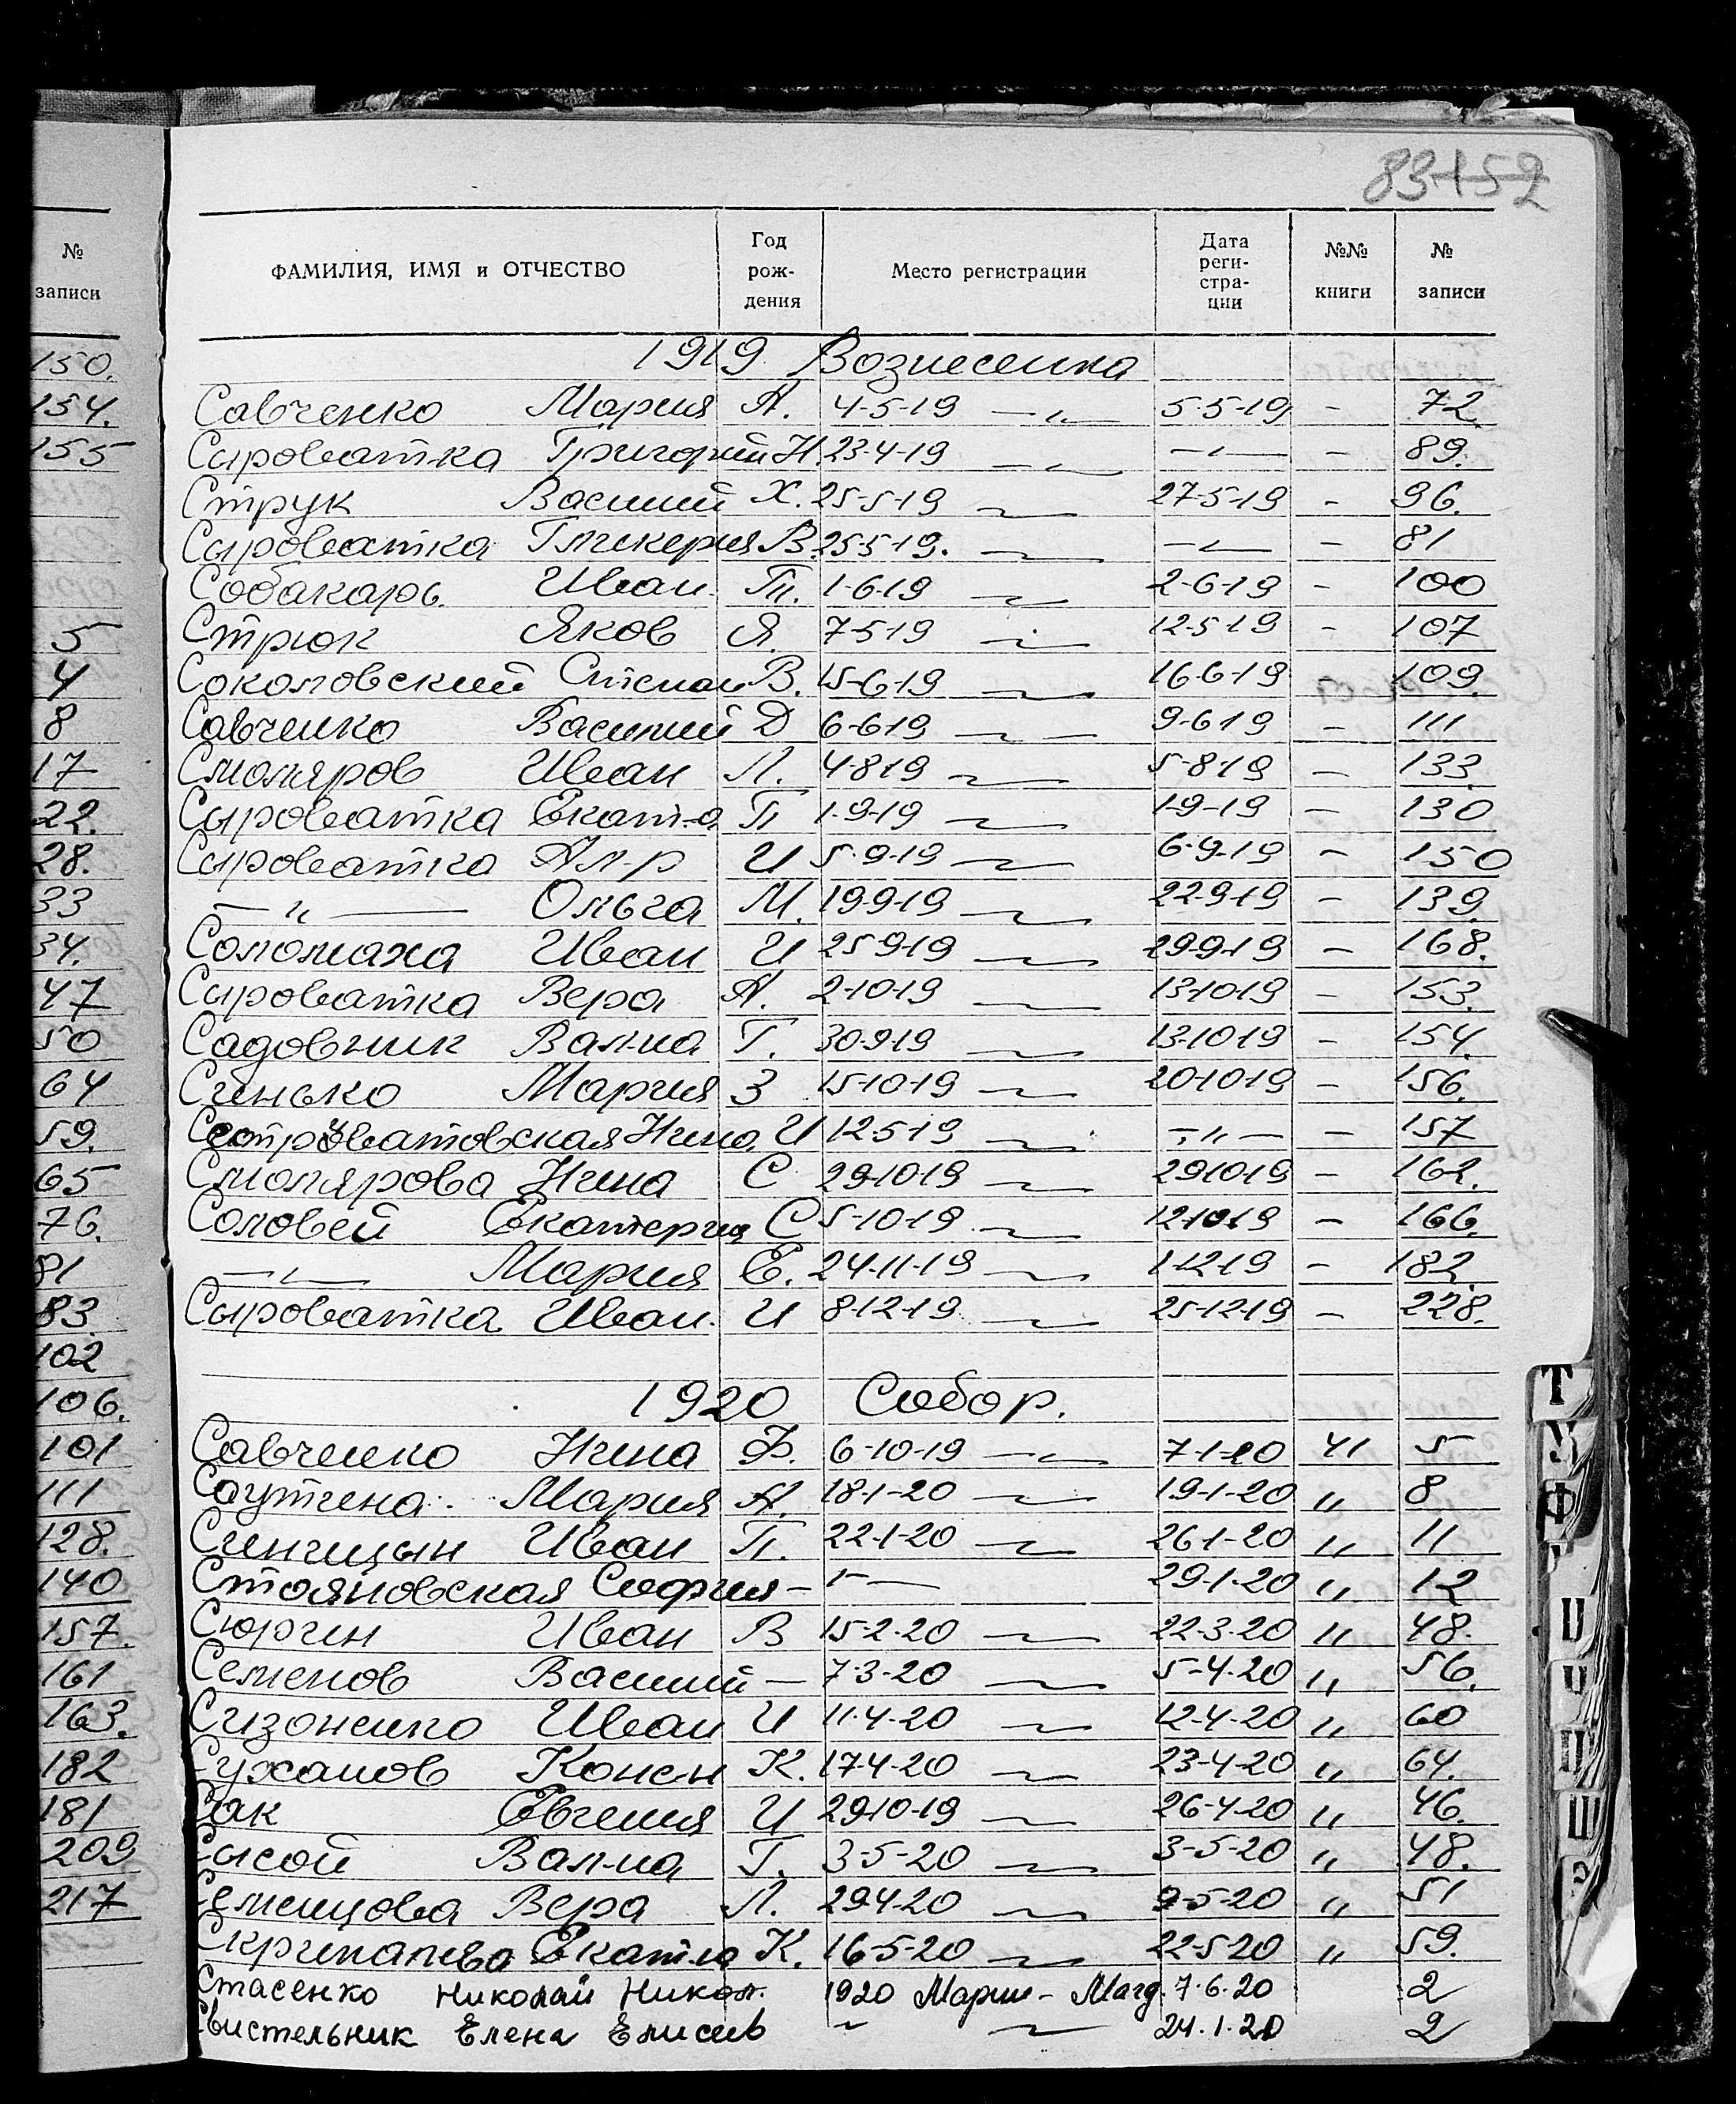 83 152
№ записи
ФАМИЛИЯ, ИМЯ и ОТЧЕСТВО Год рож- дения Место регистрации Дата реги- стра- ции №№ книги № записи
150. 1919 Вознесенка
154. Савченко Мария А. 4-5-19 —〃— 5-5-19 - 72.
155 Сыроватка Григорий Н. 23-4-19 —〃— —〃— - 89.
Струк Василий Х. 25-5-19 —〃— 27-5-19 - 96.
Сыроватка Гликерия В. 25-5-19. —〃— —〃— - 81
Собакарь Иван П. 1-6-19 —〃— 2-6-19 - 100
5 Стрюк Яков Я. 7-5-19 —〃— 12-5-19 - 107
4 Соколовский Степан В. 15-6-19 —〃— 16-6-19 109.
8 Савченко Василий Д 6-6-19 —〃— 9-6-19 - 111
17 Смоляров Иван Л. 4-8-19 —〃— 5-8-19 - 133.
22. Сыроватка Екат-а П 1-9-19 —〃— 1-9-19 - 130
28. Сыроватка Ал-р И 5-9-19 —〃— 6-9-19 - 150
33 —〃— Ольга М. 19-9-19 —〃— 22-9-19 - 139.
34. Соломаха Иван И 25-9-19 —〃— 29-9-19 - 168.
47 Сыроватка Вера А. 2-10-19 —〃— 13-10-19 - 153.
50 Садовник Вал-на Г. 30-9-19 —〃— 13-10-19 - 154.
64 Синько Мария З 15-10-19 —〃— 20-10-19 - 156.
59. Нина И 12-5-19 —〃— —〃— - 157
65 Смолярова Нина С 29-10-19 —〃— 29-10-19 - 162.
76. Соловей Екатерина С 5-10-19 —〃— 12-10-19 - 166.
81 —〃— Мария Е. 24-11-19 —〃— 1-12-19 - 182.
83. Сыроватка Иван И 8-12-19 —〃— 25-12-19 - 228.
102
106. 1920 Собор.
101 Савченко Нина Ф. 6-10-19 —〃— 7-1-20 41 5
111 Саутина Мария А. 18-1-20 —〃— 19-1-20 〃 8
128. Синицын Иван П. 22-1-20 —〃— 26-1-20 〃 11
140 Стояновская София - —〃— 29-1-20 〃 12
157. Сюрин Иван В 15-2-20 —〃— 22-3-20 〃 48.
161 Семенов Василий — 7-3-20 —〃— 5-4-20 〃 56.
163. Сизоненко Иван И 11-4-20 —〃— 12-4-20 〃 60
182 Суханов Конс-н К. 17-4-20 —〃— 23-4-20 〃 64.
181 Сак Евгения И 29-10-19 —〃— 26-4-20 〃 46.
209 Сысой Вал-на Г. 3-5-20 —〃— 3-5-20 〃 48.
217 Семенцова Вера Л. 29-4-20 —〃— 9-5-20 〃 51
Екат-на К. 16-5-20 —〃— 22-5-20 〃 59.
Стасенко Николай Никол. 1920 Марии-Магд. 7.6.20 2
Свистельник Елена Елисеев 〃 〃 24.1.20 2
Т
У
Ф
Ц
Ч
Ш